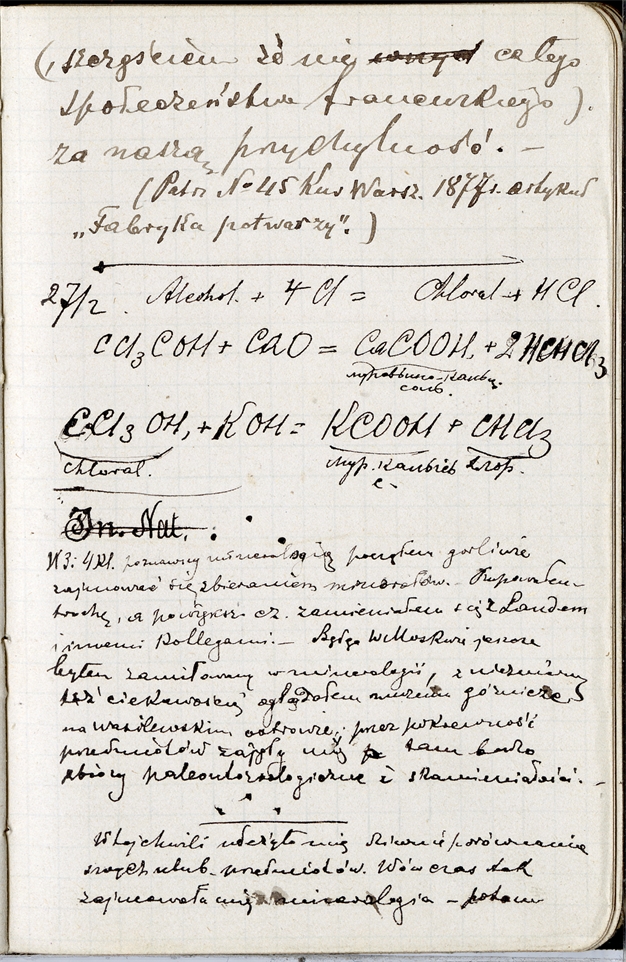 (, szczęściem że nie wnyd całego
społeczeństwa francuskiego).
za naszą przychylność. —
(Patrz № 45 Kur Warsz. 1877 r. artykuł
„Fabryka potwarzy". )
27/2. Alcohol. + 4 Cl = Chloral + HCl.
CCl3COH + CaO = CaCOOH, + 2 HCHCl3
соль.
CCl3 OH, + KOH = KCOOH + CHCl3
chloral. мур. хлор.
In. Nat. :
W 3: 4 kl. poznawszy mineralogią począłem gorliwie
zajmować się zbieraniem minerałów. — Kupowałem
trochę, a powiększ. cz. zamieniałem się z Landem
i innemi Kollegami. — Będąc w Moskwie jeszcze
byłem zamiłowany w mineralogii, z niezmierną
też ciekawością oglądałem muzeum górnicze
na wasilewskim ostrowie; przez pokrewność
przedmiotów zajęły mię tam bardzo
zbiory paleontologiczne i skamieniałości. —
W tej chwili uderzyło mię dziwne porównanie
mych ulub. przedmiotów. Wówczas tak
zajmowała mię mineralogia — potem